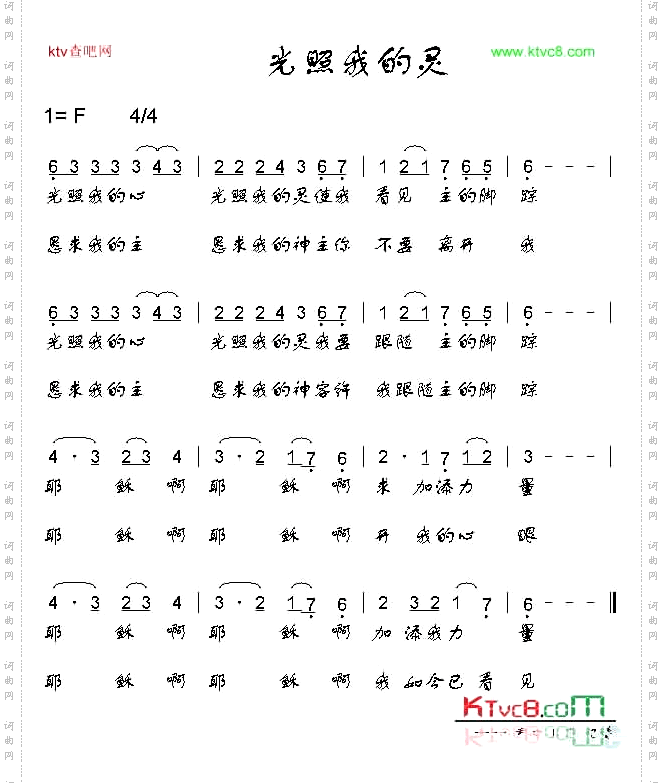 ktv查吧网
www.ktvc8.com
光照我的灵
1= F 4/4
6 3 3 3 3 4 3 | 2 2 2 4 3 6 7 | 1 2 1 7 6 5 | 6 - - - |
光照我的心 光照我的灵使我 看见 主的脚 踪
恳求我的主 恳求我的神主你 不要 离开 我
6 3 3 3 3 4 3 | 2 2 2 4 3 6 7 | 1 2 1 7 6 5 | 6 - - - |
光照我的心 光照我的灵我要 跟随 主的脚 踪
恳求我的主 恳求我的神容许 我跟随主的脚 踪
4 · 3 2 3 4 | 3 · 2 1 7 6 | 2 · 1 7 1 2 | 3 - - - |
耶 稣 啊 耶 稣 啊 求 加添力 量
耶 稣 啊 耶 稣 啊 开 我的心 眼
4 · 3 2 3 4 | 3 · 2 1 7 6 | 2 3 2 1 7 | 6 - - - ‖
耶 稣 啊 耶 稣 啊 加添我力 量
耶 稣 啊 耶 稣 啊 我 如今已 看 见
KTvc8.com